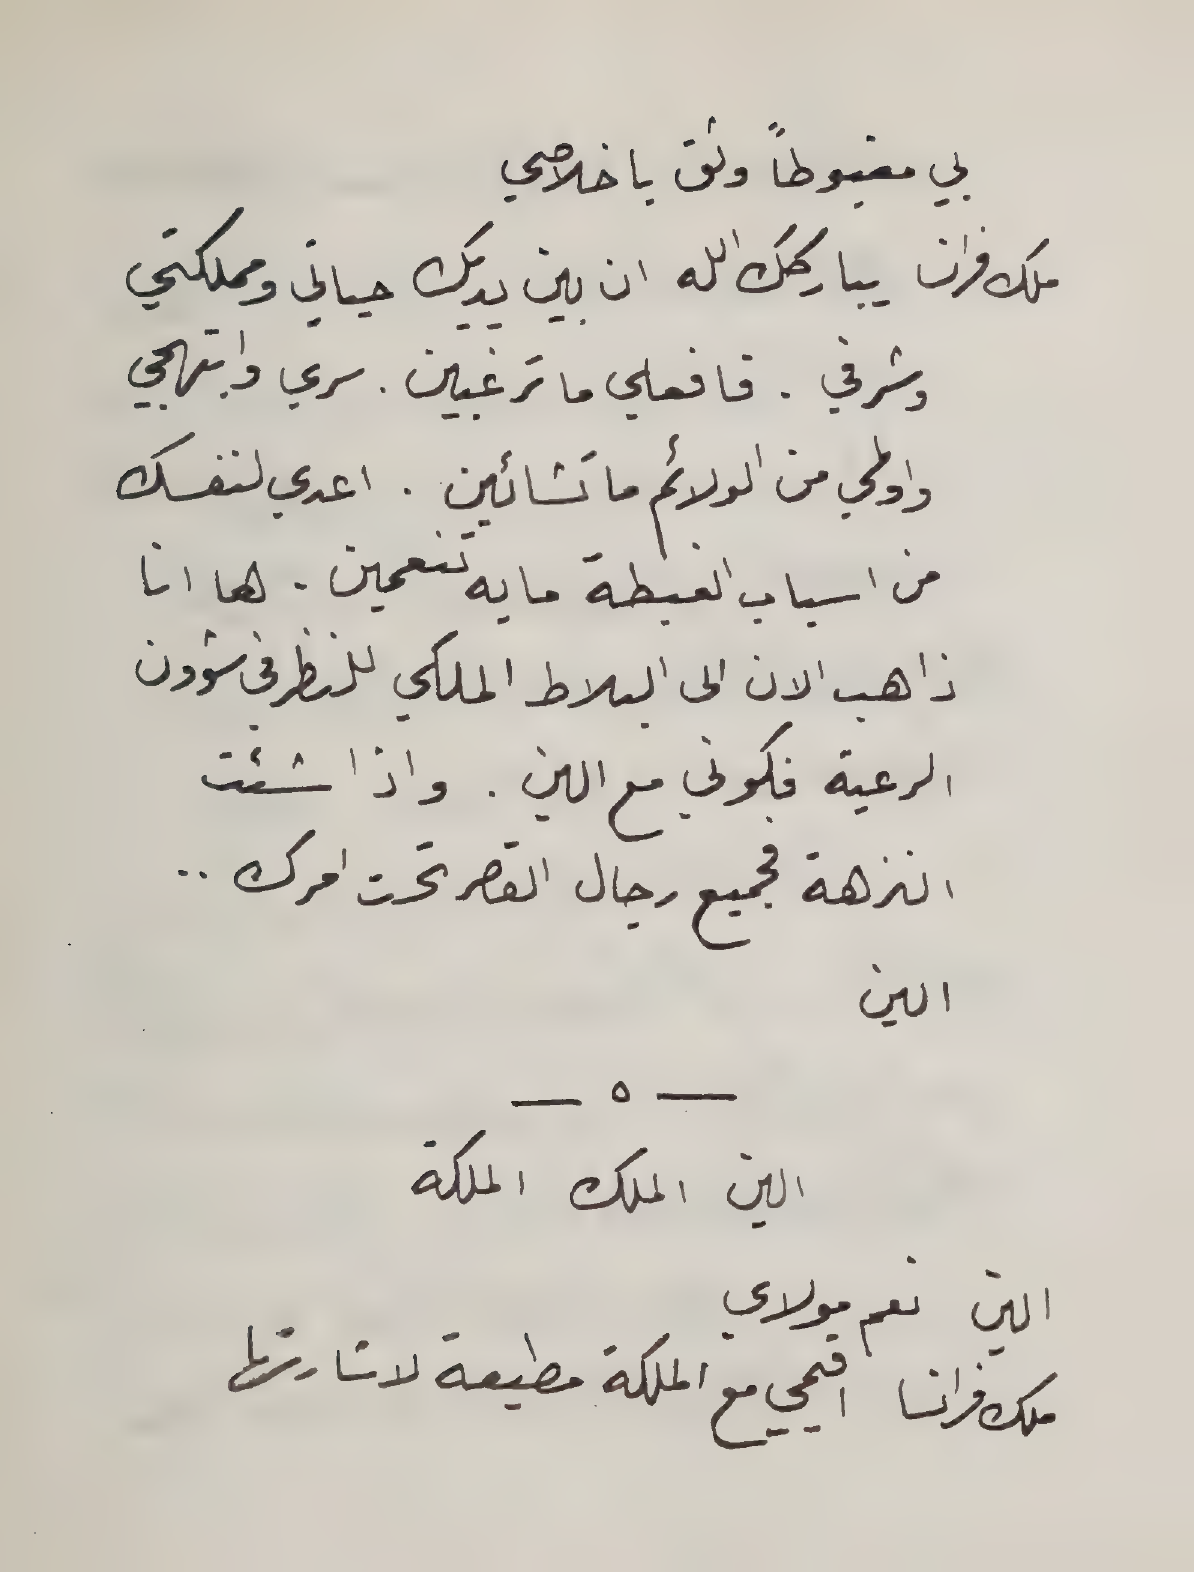 بي مغبوطاً وثق باخلاصي
ملك فرانسا يباركك الله ان بين يديك حياتي ومملكتي
وشرفي . فافعلي ما ترغبين . سري وابتهجي
واولمي من الولائم ما تشائين . اعدي لنفسك
من اسباب الغبطة ما به تنعمين . ها انا
ذاهب الان الى البلاط الملكي للنظر في شؤون
الرعية فكوني مع الين . واذا شئت
النزهة فجميع رجال القصر تحت امرك ..
الين
— ٥ —
الين الملك الملكة
الين نعم مولاي
ملك فرانسا اقيمي مع الملكة مطيعة لاشارتها